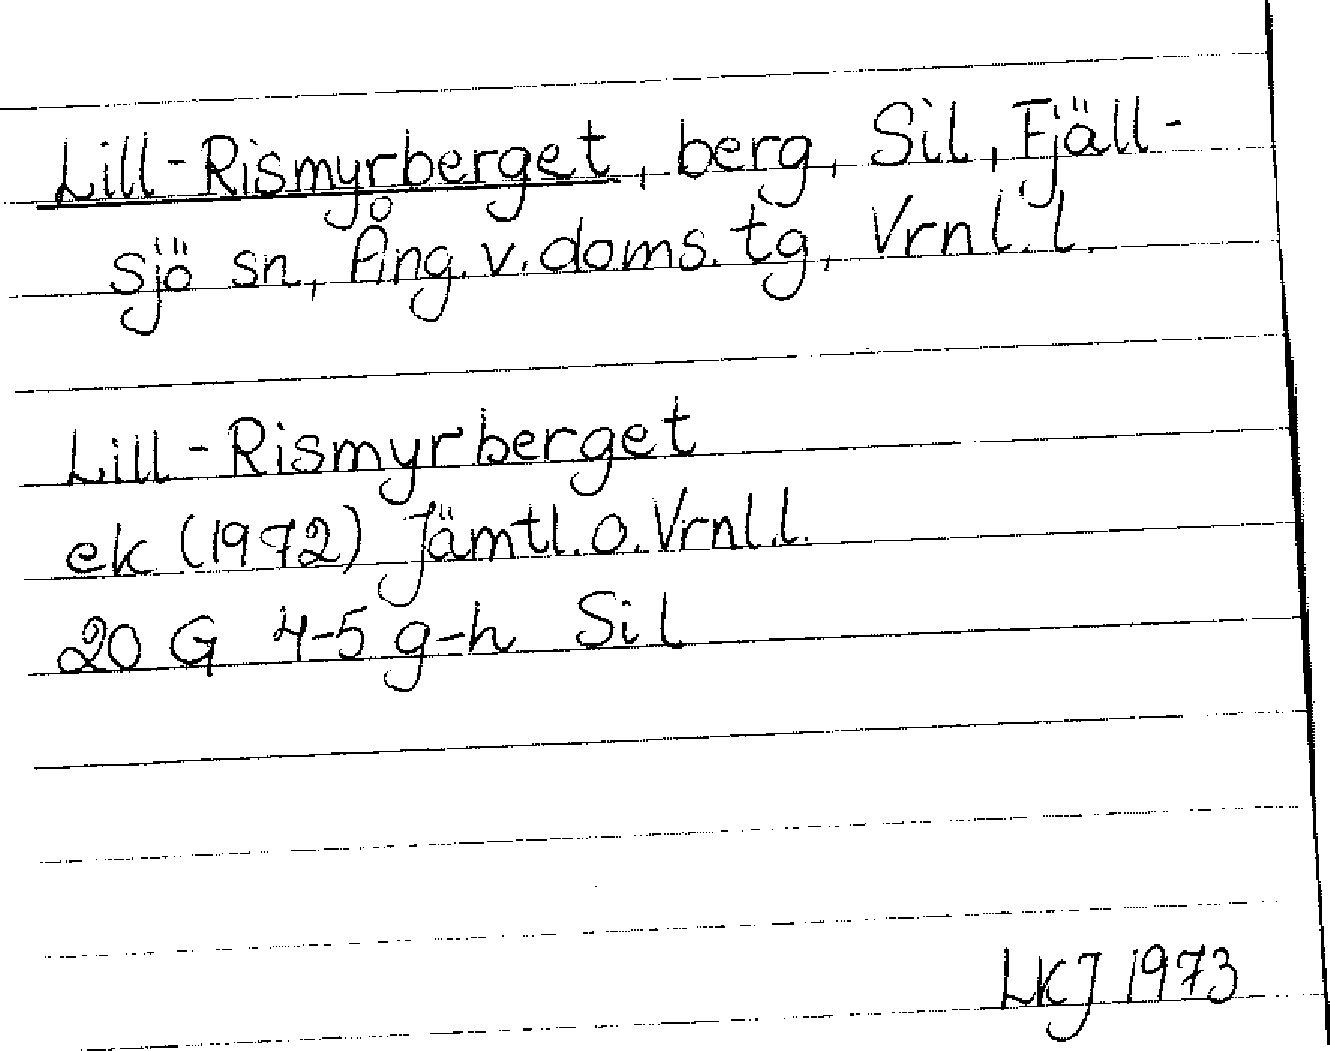 Lill-Rismyrberget, berg, Sil, Fjäll-
sjö sn, Ång. v. doms. tg, Vrnl. l.
Lill-Rismyrberget
ek (1972) Jämtl. o. Vrnl. l.
20 G 4-5 g-h Sil
LKJ 1973